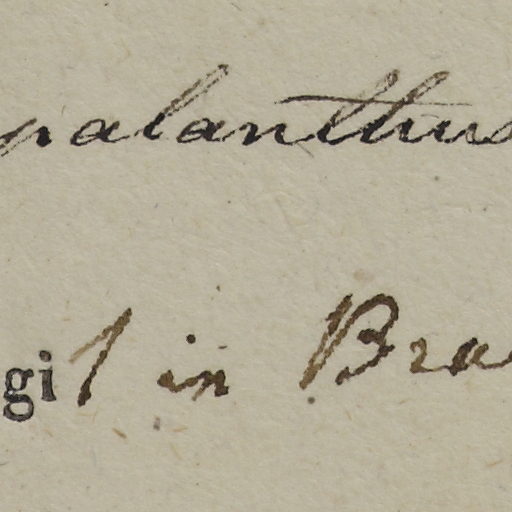 palanthus
git in Bra